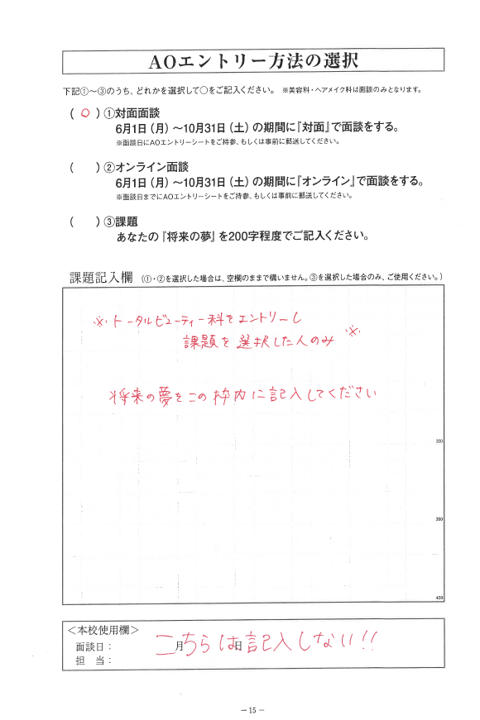 AOエントリー方法の選択
下記①～③のうち、どれかを選択して○をご記入ください。 ※美容科・ヘアメイク科は面談のみとなります。
( ○ ) ①対面面談
6月1日(月)～10月31日(土)の期間に『対面』で面談をする。
※面談日にAOエントリーシートをご持参、もしくは事前に郵送してください。
( ) ②オンライン面談
6月1日(月)～10月31日(土)の期間に『オンライン』で面談をする。
※面談日までにAOエントリーシートをご持参、もしくは事前に郵送してください。
( ) ③課題
あなたの『将来の夢』を200字程度でご記入ください。
課題記入欄 (①・②を選択した場合は、空欄のままで構いません。③を選択した場合のみ、ご使用ください。)
※トータルビューティー科をエントリーし
課題を選択した人のみ ※
将来の夢をこの枠内に記入してください
400
＜本校使用欄＞
面談日： 月 日
担 当：
こちらは記入しない!!
－15－